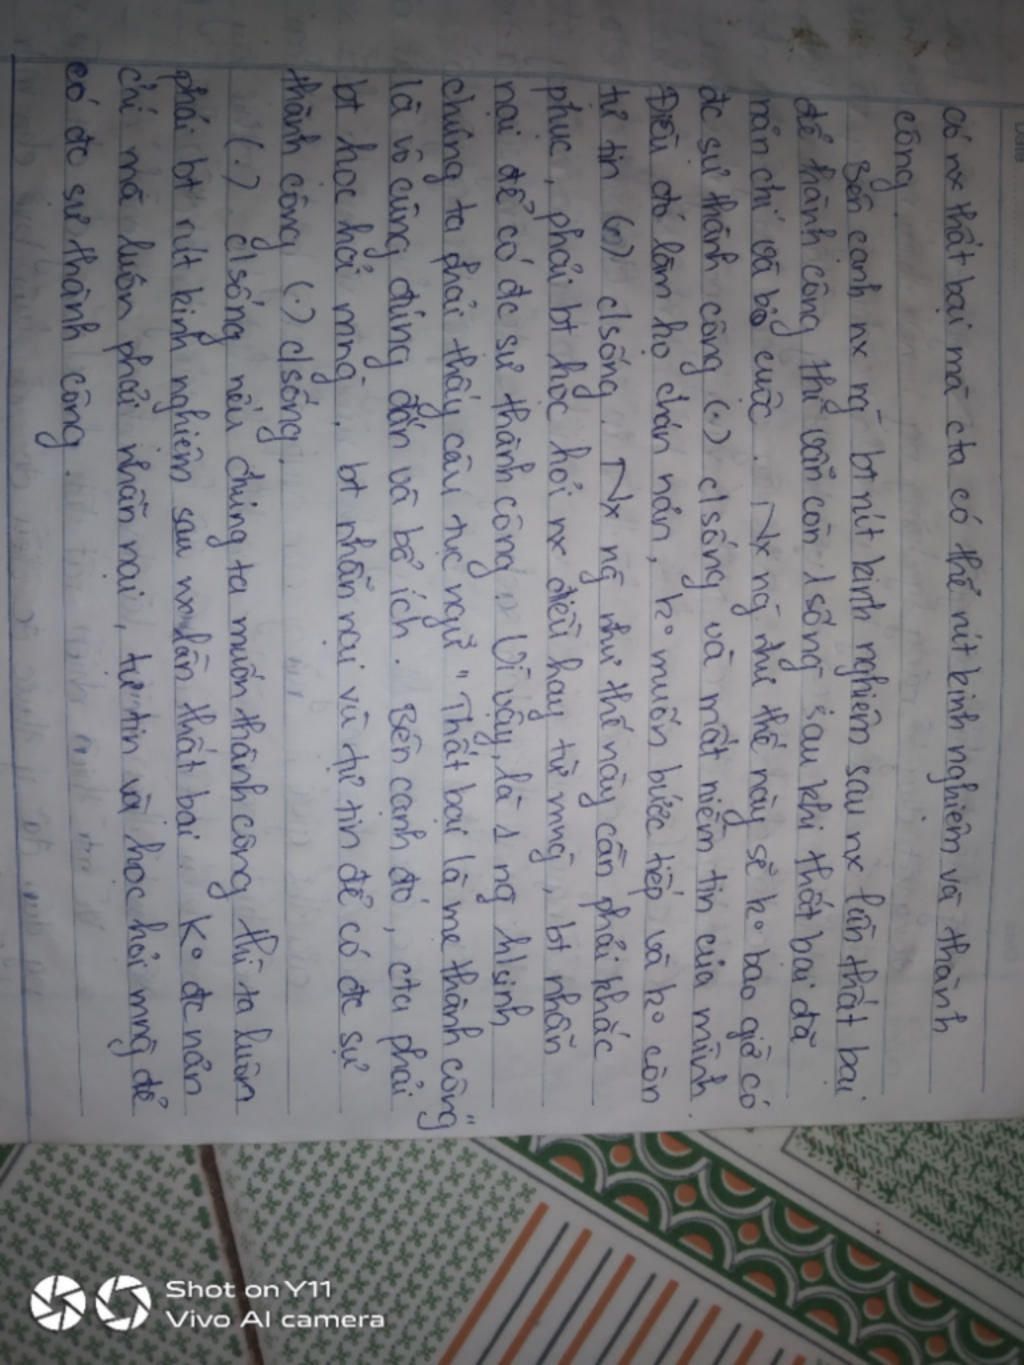 có nx thất bại mà cta có thể rút kinh nghiệm và thành
công.
Bên cạnh nx ng` bt rút kinh nghiệm sau nx lần thất bại
để thành công thì vẫn còn 1 số ng` sau khi thất bại đã
nản chí và bỏ cuộc. Nx ng` như thế này sẽ k° bao giờ có
đc sự thành công (.) c/sống và mất niềm tin của mình.
Điều đó làm họ chán nản, k° muốn bước tiếp và k° còn
tự tin (.) c/sống. Nx ng` như thế này cần phải khắc
phục, phải bt học hỏi nx điều hay từ mng`, bt nhẫn
nại để có đc sự thành công. Vì vậy, là 1 ng h/sinh
chúng ta phải thấy câu tục ngữ "Thất bại là mẹ thành công"
là vô cùng đúng đắn và bổ ích. Bên cạnh đó, cta phải
bt học hỏi mng`, bt nhẫn nại và tự tin để có đc sự
thành công (.) c/sống.
(.) c/sống nếu chúng ta muốn thành công thì ta luôn
phải bt rút kinh nghiệm sau mỗi lần thất bại. K° đc nản
chí mà luôn phải nhẫn nại, tự tin và học hỏi mng` để
có đc sự thành công.
Shot on Y11
Vivo AI camera